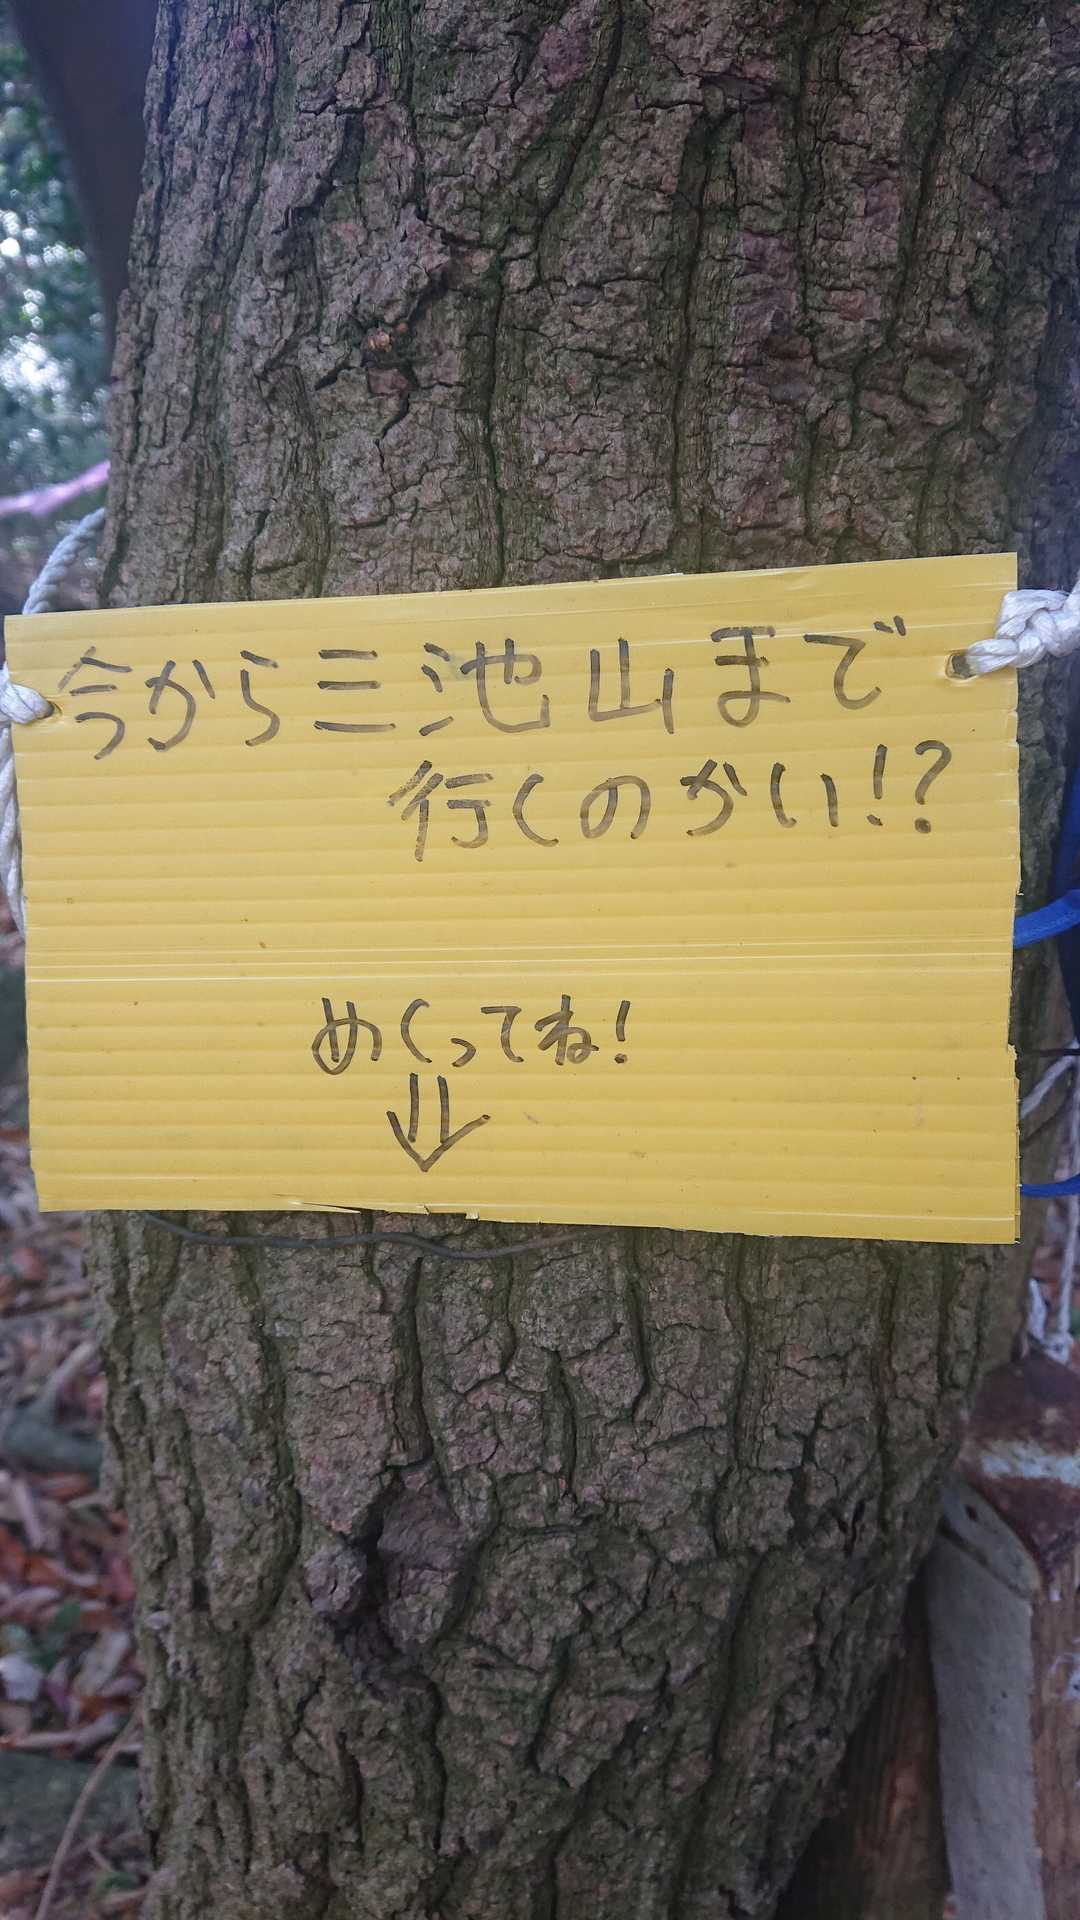 今から三池山まで
行くのかい!?
めくってね!